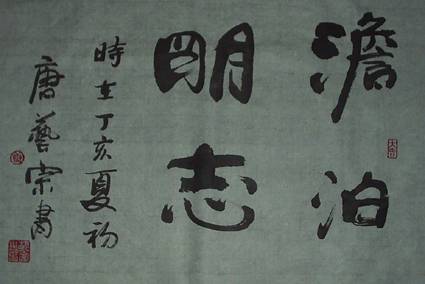 澹泊
明志
時在丁亥夏初
唐藝宗書